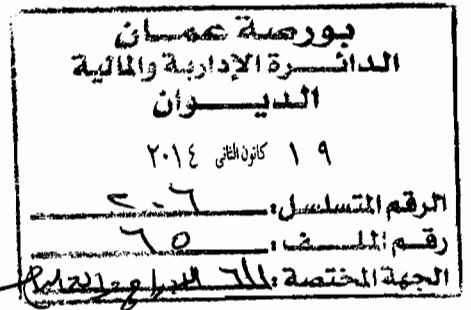 بورصة عمان
الدائرة الإدارية والمالية
الديوان
١٩ كانون الثاني ٢٠١٤
الرقم المتسلسل: ٢٠٦
رقم الملف: ٦٥
الجهة المختصة: